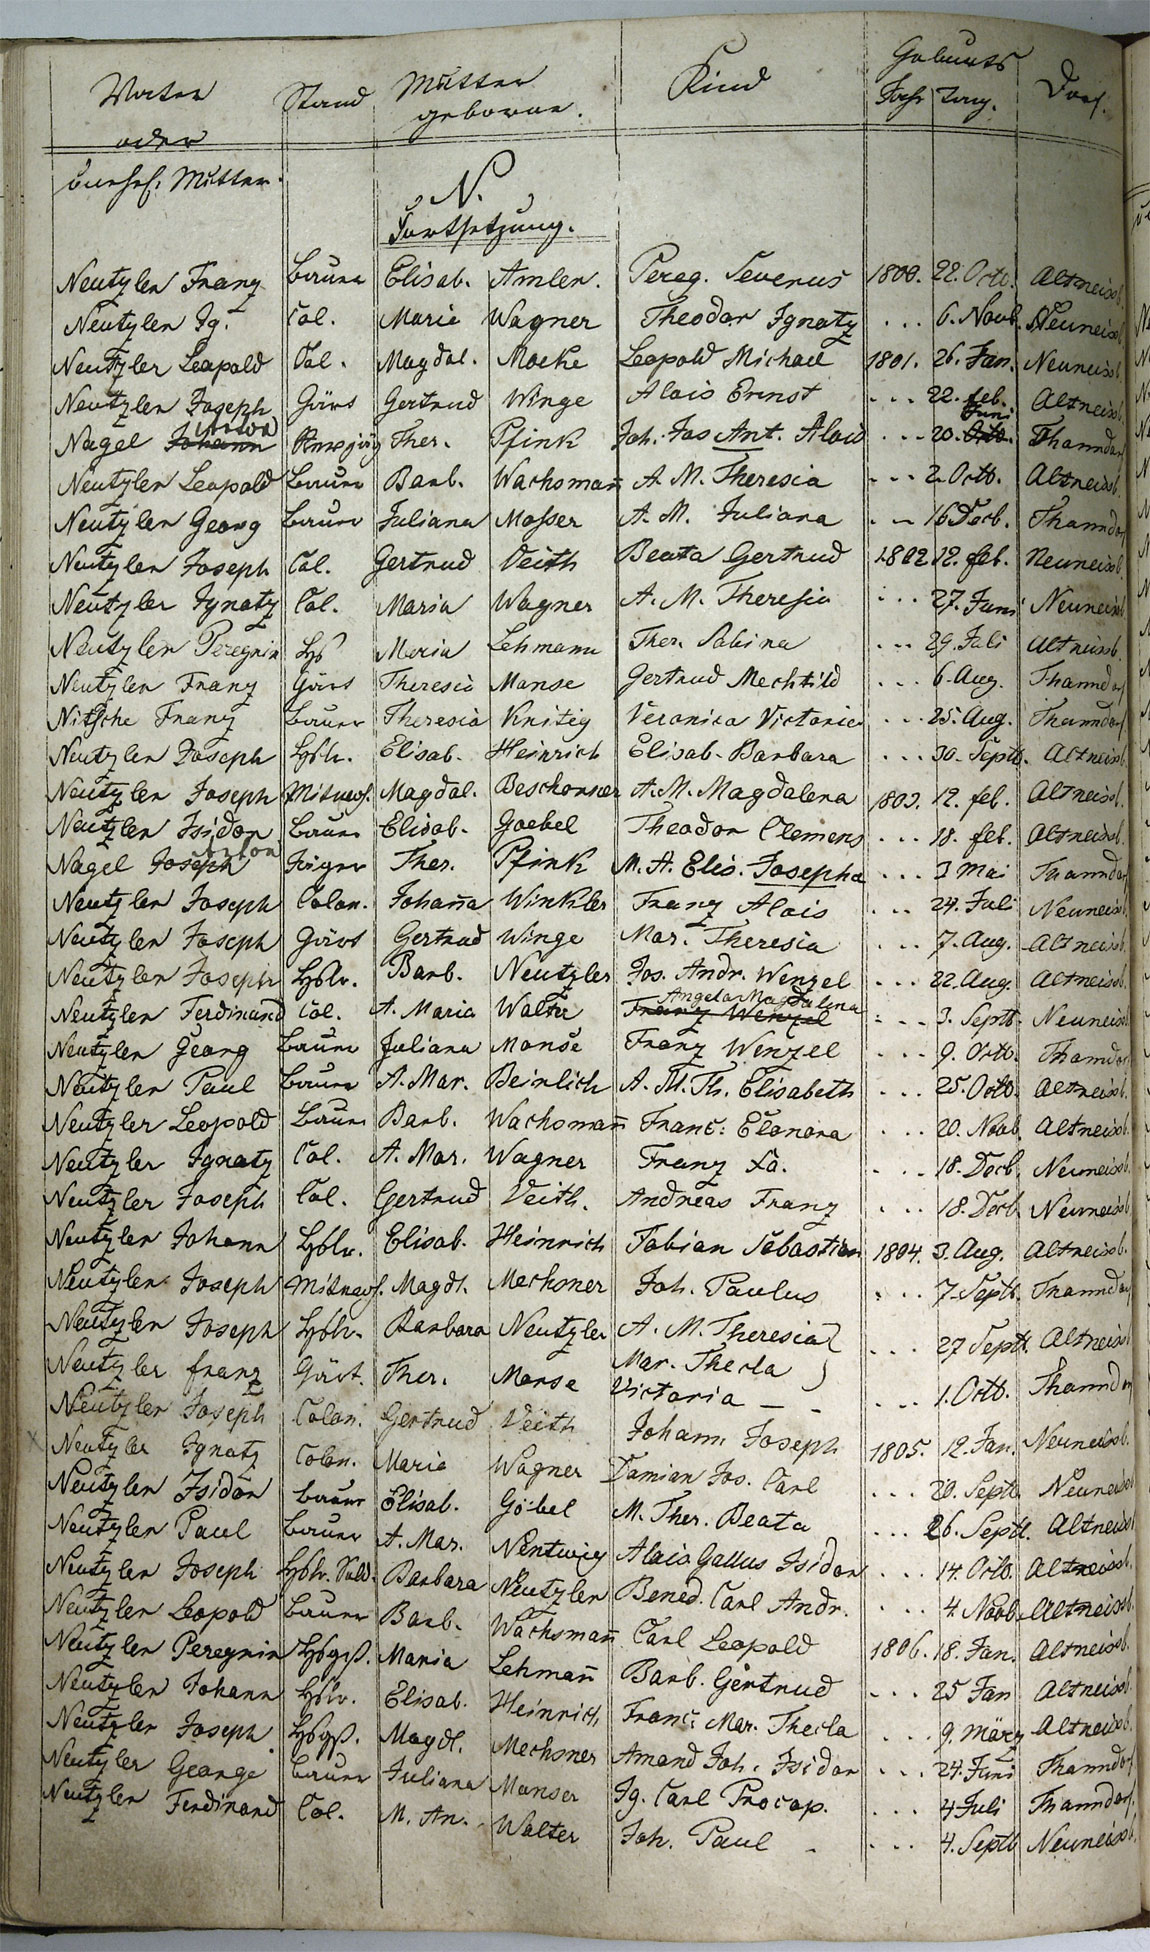 Vater Stand Mutter Kind Geburts Dorf.
oder geborne. Jahr Tag.
unehel. Mutter.
N.
Fortsetzung.
Neutzler Franz Bauer Elisab. Amler. Pereg. Severus 1800. 22. Octb. Altneissb.
Neutzler Ig. Col. Maria Wagner Theodor Ignatz ... 6. Novb. Neuneissb.
Neutzler Leopold Col. Magdal. Moeke Leopold Michael 1801. 26. Jan. Neuneissb.
Neutzler Joseph Gärt Gertrud Winge Alois Ernst ... 22. feb. Altneissb.
Nagel Johann Anton Ther. Pfink Joh. Jos Ant. Alois ... 20. Octb. Juni Thanndorf
Neutzler Leopold Bauer Barb. Wachsman̄ A. M. Theresia ... 2. Octb. Altneissb.
Neutzler Georg Bauer Juliana Mosser A. M. Juliana ... 16 Decb. Thanndorf
Neutzler Joseph Col. Gertrud Veith Beata Gertrud 1802 12. feb. Neuneissb.
Neutzler Ignatz Col. Maria Wagner A. M. Theresia ... 27. Juni Neuneissb.
Neutzler Peregrin Hß Maria Lehmann Ther. Sabina ... 29. Juli Altneissb.
Neutzler Franz Gärt Theresia Manse Gertrud Mechtild ... 6. Aug. Thanndorf
Nitsche Franz Bauer Theresia Knitig Veronica Victoria ... 25. Aug. Thanndorf
Neutzler Joseph Hßlr. Elisab. Heinrich Elisab. Barbara ... 30. Septb. Altneissb.
Neutzler Joseph Magdal. Beschorner A. M. Magdalena 1803. 12. feb. Altneissb.
Neutzler Isidor Bauer Elisab. Goebel Theodor Clemens ... 18. feb. Altneissb.
Nagel Joseph Anton Jäger Ther. Pfink M. A. Elis. Josepha ... 3 Mai Thanndorf
Neutzler Joseph Colon. Johan̄a Winkler Franz Alois ... 24. Juli Neuneissb.
Neutzler Joseph Gärt Gertrud Winge Mar. Theresia ... 7. Aug. Altneissb.
Neutzler Joseph Hßlr. Barb. Neutzler Jos. Andr. Wenzel ... 22. Aug. Altneissb.
Neutzler Ferdinand Col. A. Maria Walter Franz Wenzel Angela Magdalena ... 3. Septb. Neuneissb.
Neutzler Georg Bauer Juliana Monse Franz Wenzel ... 9. Octb. Thanndorf
Neutzler Paul Bauer A. Mar. Beinlich A. M. Th. Elisabeth ... 25. Octb. Altneissb.
Neutzler Leopold Bauer Barb. Wachsman̄ Franc: Elonora ... 20. Novb. Altneissb.
Neutzler Ignatz Col. A. Mar. Wagner Franz Xa. ... 18. Decb. Neuneissb.
Neutzler Joseph Col. Gertrud Veith. Andreas Franz ... 18. Decb. Neuneissb.
Neutzler Johann Hßlr. Elisab. Heinrich Fabian Sebastian 1804. 3. Aug. Altneissb.
Neutzler Joseph Magdl. Mechsner Joh. Paulus ... 7. Septb. Thanndorf
Neutzler Joseph Hßlr. Barbara Neutzler A. M. Theresia Mar. Thecla ... 27 Septb. Altneissb.
Neutzler franz Gärt. Ther. Manse Victoria — - ... 1. Octb. Thanndorf
Neutzler Joseph Colon. Gertrud Veith Johann Joseph 1805. 12. Jan. Neuneissb.
x Neutzler Ignatz Colon. Maria Wagner Damian Jos. Carl ... 20. Septb. Neuneissb.
Neutzler Isidor Bauer Elisab. Göbel M. Ther. Beata ... 26. Septb. Altneissb.
Neutzler Paul Bauer A. Mar. Nentwig Alois Gallus Isidor ... 14. Octb. Altneissb.
Neutzler Joseph Hßlr. Barbara Neutzler Bened. Carl Andr. ... 4. Novb. Altneissb.
Neutzler Leopold Bauer Barb. Wachsman̄ Carl Leopold 1806. 18. Jan. Altneissb.
Neutzler Peregrin Maria Lehman̄ Barb. Gertrud ... 25 Jan Altneissb.
Neutzler Johann Hßlr. Elisab. Heinrich Franc: Mar. Thecla ... 9. März Altneissb.
Neutzler Joseph Magdl. Mechsner Amand Joh. Isidor ... 24. Juni Thanndorf
Neutzler George Bauer Juliana Manser Ig. Carl Procop. ... 4 Juli Thanndorf.
Neutzler Ferdinand Col. M. An. Walter Joh. Paul ... 4. Septb Neuneissb.